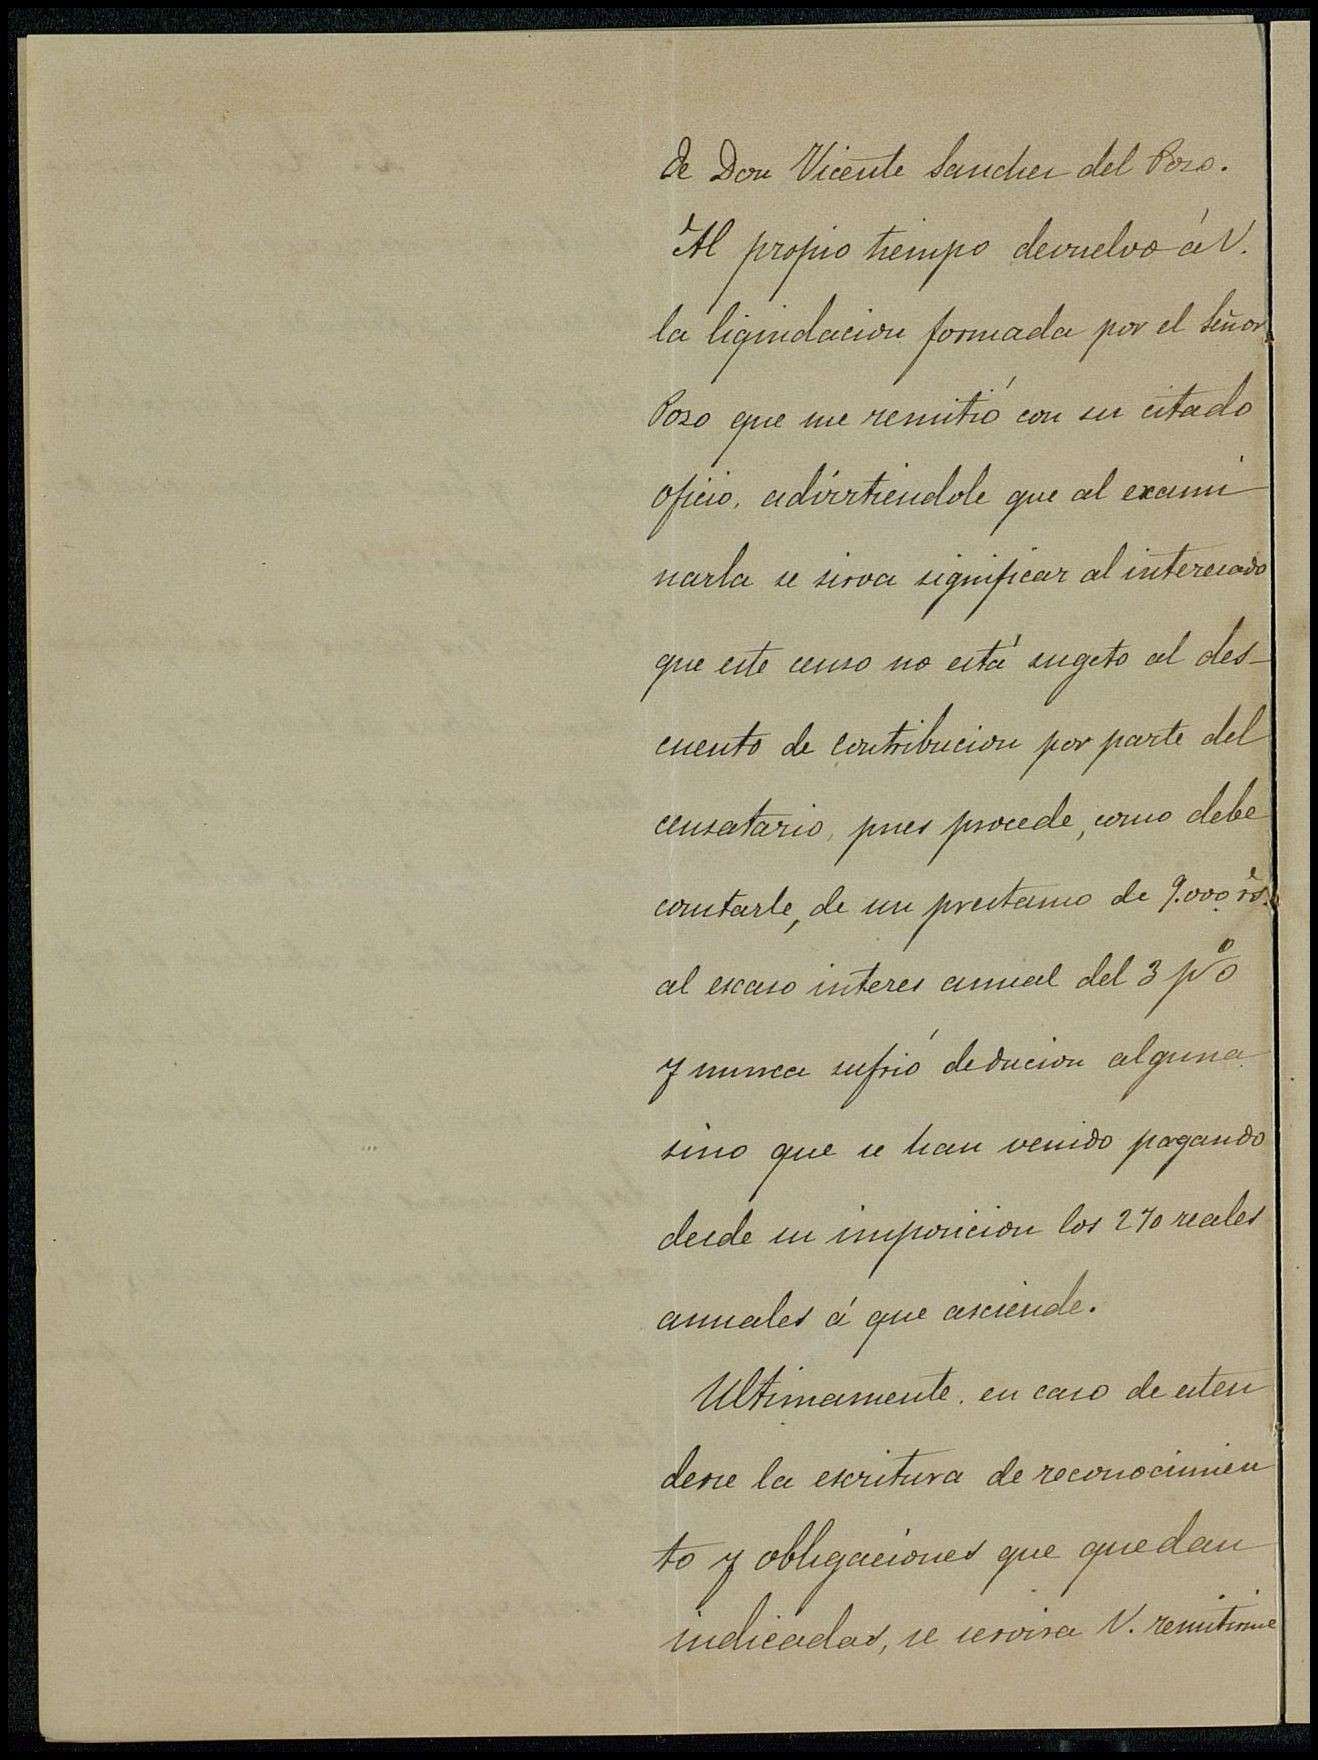 de Don Vicente Sanchez del Pozo.
Al propio tiempo devuelvo á V.
la liquidacion formada por el Señor
Pozo que me remitió con su citado
oficio, advirtiendole que al exami
narla se sirva significar al interesado
que este censo no está sugeto al des-
cuento de contribucion por parte del
censatario, pues procede, como debe
constarle, de un prestamo de 9.000 rs.
al escaso interes anual del 3 p%
y nunca sufrió deducion alguna
sino que se han venido pagando
desde su imposicion los 270 reales
anuales á que asciende.
Ultimamente, en caso de esten
derse la escritura de reconocimien
to y obligaciones que quedan
indicadas, se servira V. remitirme